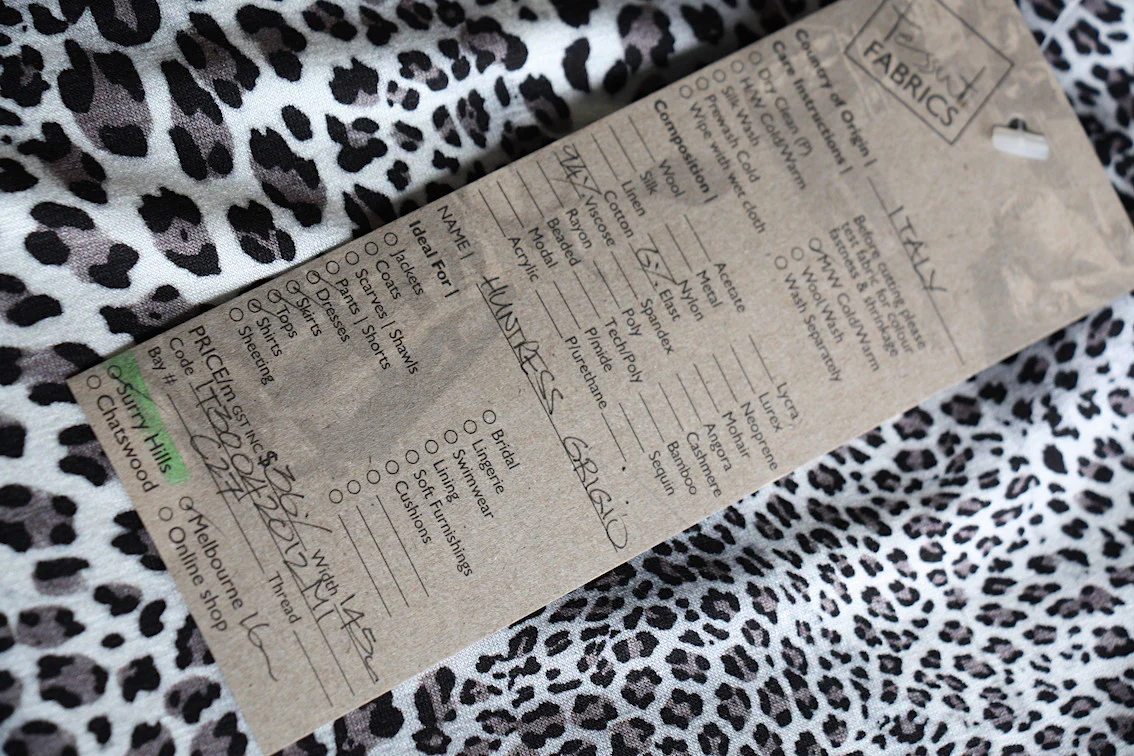 Tessuti
FABRICS
Country of Origin | ITALY
Care Instructions |
Dry Clean (P)
H/W Cold/Warm
Silk Wash
Prewash Cold
Wipe with wet cloth
Before cutting please
test fabric for colour
fastness & shrinkage
M/W Cold/Warm
Wool Wash
Wash Separately
Composition |
Wool Acetate Lycra
Silk Metal Lurex
Linen Nylon Neoprene
Cotton 6% Elast Mohair
94% Viscose Spandex Angora
Rayon Poly Cashmere
Beaded Tech/Poly Bamboo
Modal P/mide Sequin
Acrylic P/urethane
NAME | HUNTRESS GRIGIO
Ideal For |
Jackets Bridal
Coats Lingerie
Scarves | Shawls Swimwear
Pants | Shorts Lining
Dresses Soft Furnishings
Skirts Cushions
Tops
Shirts
Sheeting
PRICE/m GST INC $36/ Width 145c
Code
Bay # Thread
Surry Hills Melbourne
Chatswood Online shop